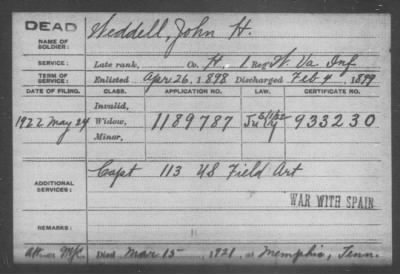 DEAD
NAME OF SOLDIER: Weddell, John H.
SERVICE: Late rank, Co. H, 1 Reg't W. Va Inf
TERM OF SERVICE: Enlisted Apr 26, 1898 Discharged Feb 4, 1899
DATE OF FILING. CLASS. APPLICATION NO. CERTIFICATE NO.
Invalid,
1922 May 24 Widow, 1189787 933230
Minor,
ADDITIONAL SERVICES: Capt 113 US Field Art
WAR WITH SPAIN
REMARKS:
Died Mar 15, 1921, at Memphis, Tenn.